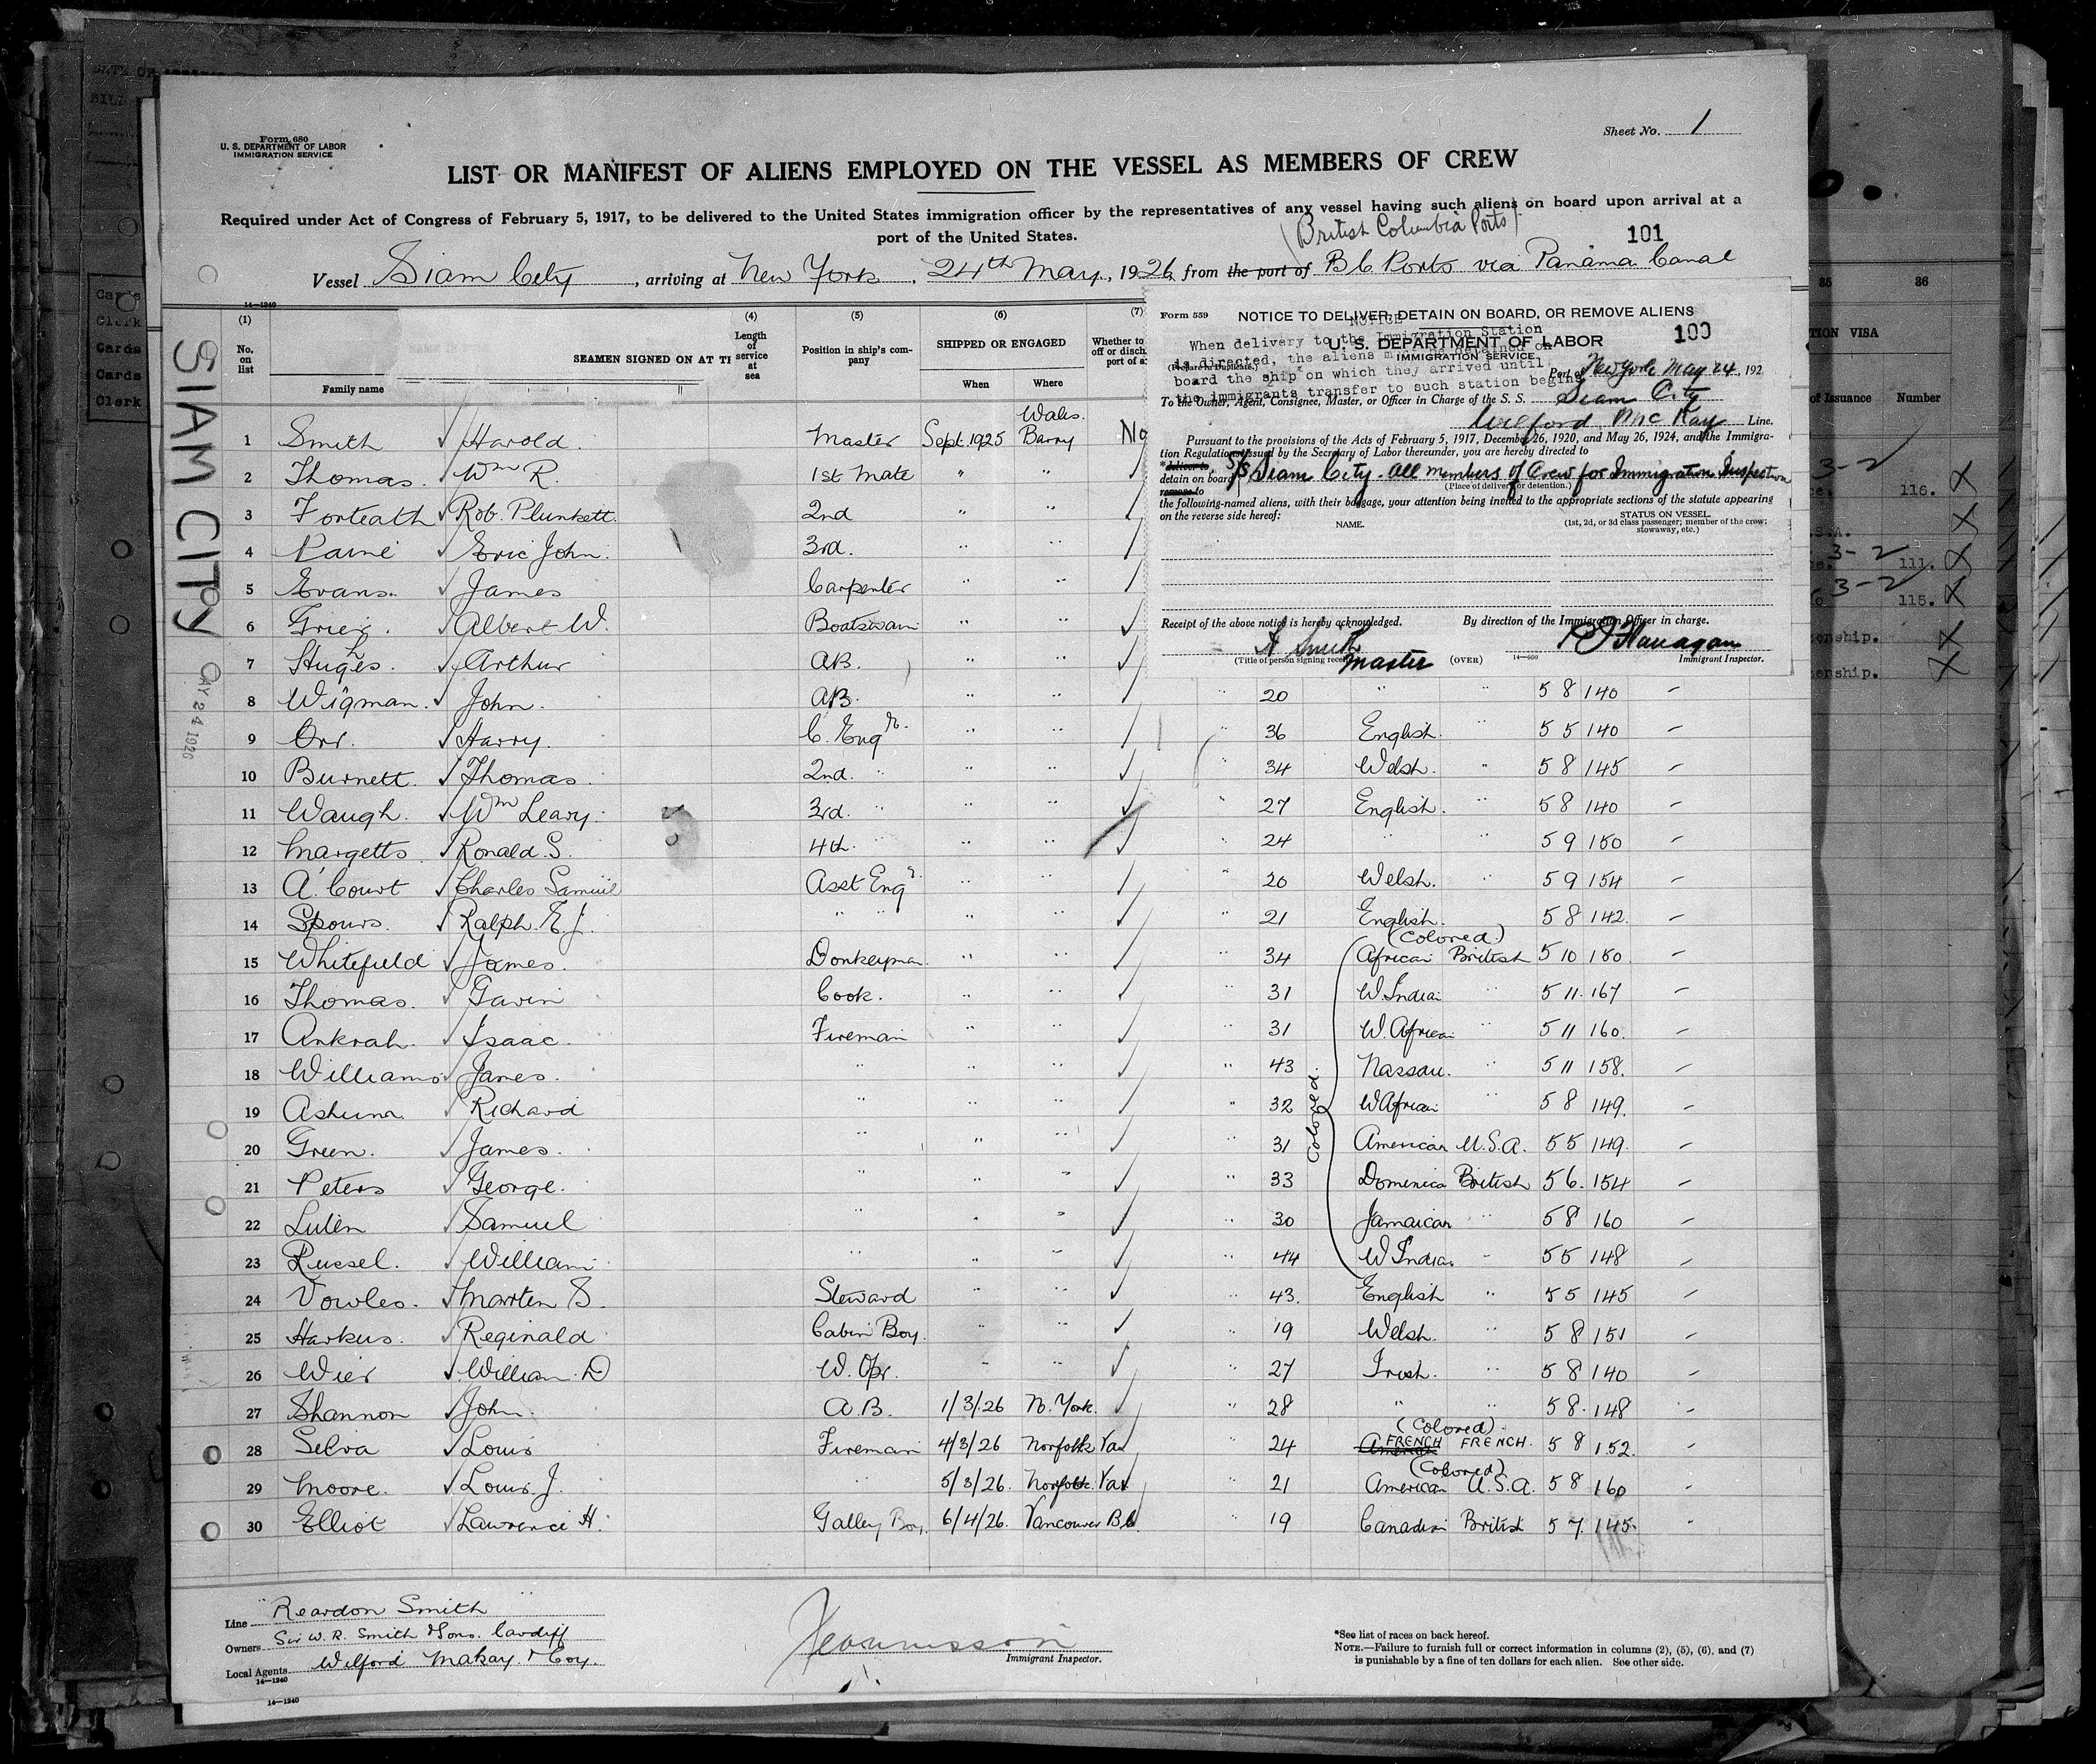 Form 680
U. S. DEPARTMENT OF LABOR
IMMIGRATION SERVICE
Sheet No. 1
LIST OR MANIFEST OF ALIENS EMPLOYED ON THE VESSEL AS MEMBERS OF CREW
Required under Act of Congress of February 5, 1917, to be delivered to the United States immigration officer by the representatives of any vessel having such aliens on board upon arrival at a
port of the United States.
(British Columbia Ports)
101
Vessel Siam City, arriving at New York, 24th May, 1926, from the port of B C Ports via Panama Canal
14-1240
(1) (4) (5) (6) (7)
No. on list
Family name
SEAMEN SIGNED ON AT TI
Length of service at sea
Position in ship's company
SHIPPED OR ENGAGED
When Where
Whether to
off or disch
port of a
SIAM CITY
MAY 24 1926
Form 559
NOTICE TO DELIVER, DETAIN ON BOARD, OR REMOVE ALIENS
NOTICE
100
When delivery to the Immigration Station
U. S. DEPARTMENT OF LABOR
is directed, the aliens
IMMIGRATION SERVICE
(Prepare in Duplicate.)
board the ship on which they arrived until
Port of New York May 24, 192
the immigrants transfer to such station begins
To the Owner, Agent, Consignee, Master, or Officer in Charge of the S. S. Siam City
Wilford McKay Line.
Pursuant to the provisions of the Acts of February 5, 1917, December 26, 1920, and May 26, 1924, and the Immigra-
tion Regulations issued by the Secretary of Labor thereunder, you are hereby directed to
*deliver to
detain on board S/S Siam City - all members of Crew for Immigration Inspection
remove to
(Place of delivery or detention.)
the following-named aliens, with their baggage, your attention being invited to the appropriate sections of the statute appearing
on the reverse side hereof:
NAME.
STATUS ON VESSEL
(1st, 2d, or 3d class passenger; member of the crew;
stowaway, etc.)
Receipt of the above notice is hereby acknowledged.
By direction of the Immigration Officer in charge.
H Smith
Master
(Title of person signing receipt)
(OVER)
14-650
Flanagan
Immigrant Inspector.
Wales.
1 Smith Harold. Master Sept. 1925 Barry No
2 Thomas. Wm R. 1st Mate " "
3 Forteath Rob. Plunkett. 2nd " "
4 Paine Eric John. 3rd. " "
5 Evans. James Carpenter " "
6 Albert W. Boatswain " "
7 Hughes. Arthur AB. " "
8 Wigman. John. AB. " " " 20 " " 5 8 140 -
9 Orr. Harry. C. Engr. " " 36 English. " 5 5 140 -
10 Burnett. Thomas. 2nd. " " " " 34 Welsh. " 5 8 145 -
11 Waugh. Wm Leary. 3rd. " " " " 27 English. " 5 8 140 -
12 Margetts Ronald S. 4th. " " " 24 " " 5 9 150 -
13 A'Court Charles Samuel Asst Engr " " " 20 Welsh. " 5 9 154 -
14 Spours. Ralph. E. J. " " " " " 21 English. 5 8 142. -
(Colored)
15 Whitefield James. Donkeyman. " " " 34 African British 5 10 180. -
16 Thomas. Gavin Cook. " " " 31 W. Indian " 5 11. 167 -
17 Ankrah. Isaac. Fireman " " " 31 W. African " 5 11 160. -
18 Williams James. " " " " 43 Nassau. " 5 11 158. -
Colored.
19 Ashuna Richard " " " " 32 W African " 5 8 149. -
20 Green. James. " " " " 31 American U.S.A. 5 5 149. -
21 Peters George. " " " " 33 Dominica British 5 6. 154 -
22 Samuel " " " " 30 Jamaican " 5 8 160 -
23 Russel. William " " " " 44 W Indian " 5 5 148 -
24 Vowles. Marten S. Steward " " " 43. English " 5 5 145 -
25 Harkus. Reginald Cabin Boy. " " " 19 Welsh. " 5 8 151 -
26 Wier William. D W. Opr. " " " 27 Irish. " 5 8 140 -
27 Shannon John. A.B. 1/3/26 N. York. " 28 " " 5 8. 148 -
(Colored).
28 Selva Louis Fireman 4/3/26 Norfolk Va " 24 FRENCH FRENCH. 5 8 152. -
(Colored)
29 Moore. Louis. J. " 5/3/26. Norfolk. Va " 21 American U.S.A. 5 8 160 -
30 Elliot Lawrence H. Galley Boy. 6/4/26. Vancouver B C. " 19 Canadian British 5 7. 145. -
Line Reardon Smith
Owners Sir W. R. Smith & Sons. Cardiff
Local Agents Wilford Makay. & Coy.
14-1240
14-1240
Immigrant Inspector.
*See list of races on back hereof.
NOTE.—Failure to furnish full or correct information in columns (2), (5), (6), and (7)
is punishable by a fine of ten dollars for each alien. See other side.
35 36
TION VISA
of Issuance Number
3-2
116.
S.A.
3-2
111.
3-2
115.
enship.
enship.
Cards
Clerk
Cards
Cards
Clerk